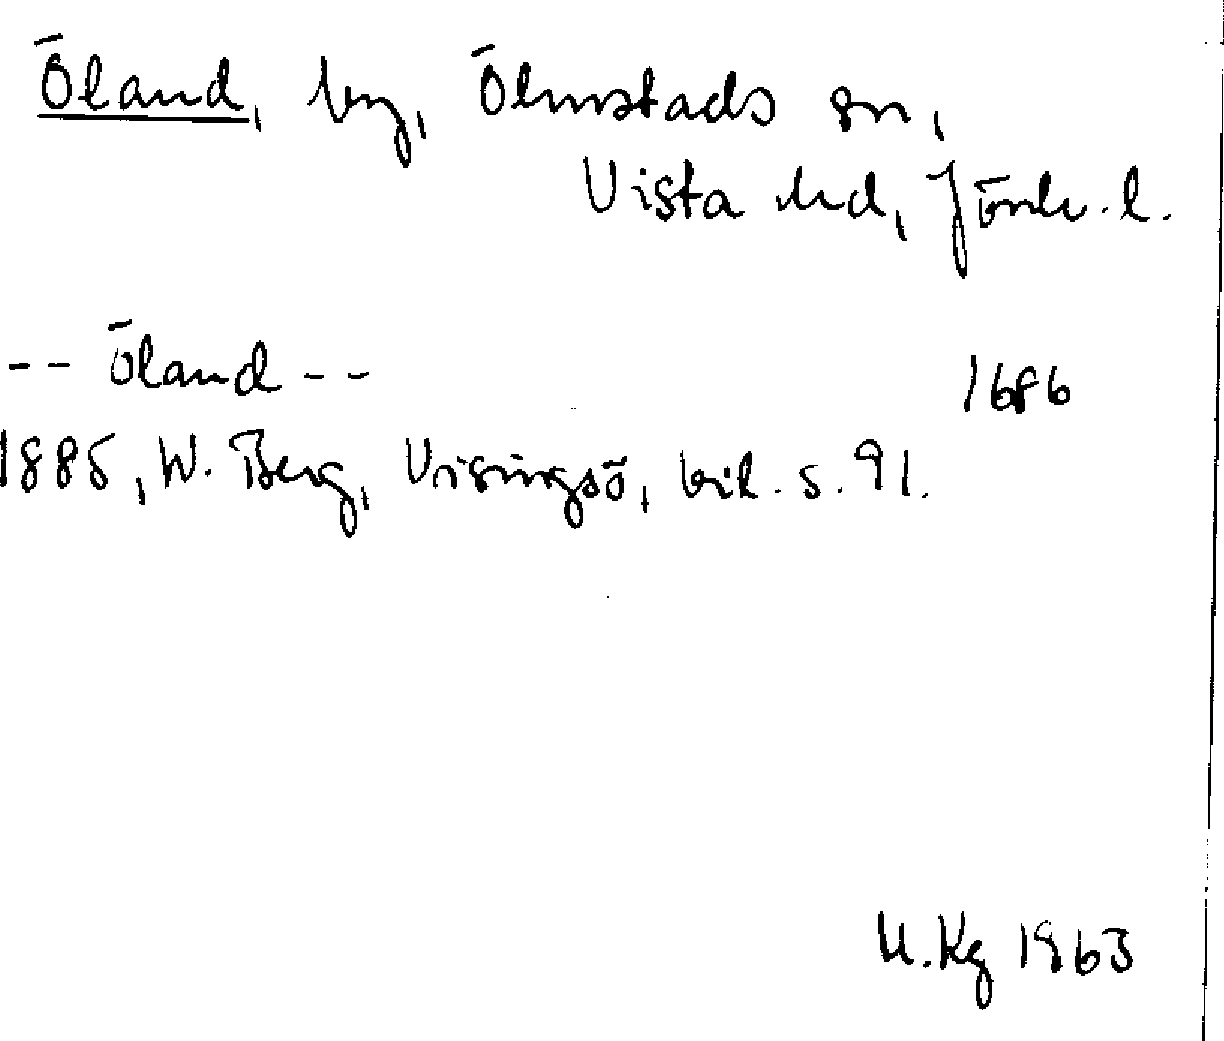 Öland, by, Ölmstads sn,
Vista hd, Jönk. l.
-- Öland -- 1686
1885, W. Berg, Visingsö, bil. s. 91.
U.Kg 1963